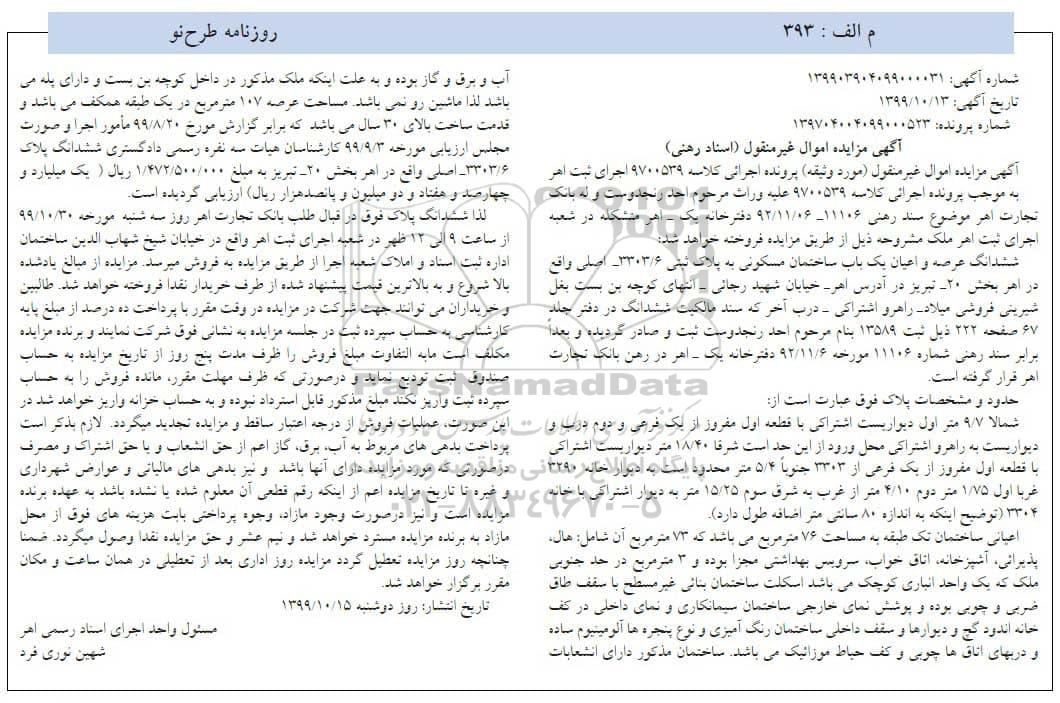 روزنامه طرح‌نو
م الف : ۳۹۳
شماره آگهی: ۱۳۹۹۰۳۹۰۴۰۹۹۰۰۰۰۳۱
تاریخ آگهی: ۱۳۹۹/۱۰/۱۳
شماره پرونده: ۱۳۹۷۰۴۰۰۴۰۹۹۰۰۰۵۲۳
آگهی مزایده اموال غیرمنقول (اسناد رهنی)
آگهی مزایده اموال غیرمنقول (مورد وثیقه) پرونده اجرائی کلاسه ۹۷۰۰۵۳۹ اجرای ثبت اهر
به موجب پرونده اجرائی کلاسه ۹۷۰۰۵۳۹ علیه وراث مرحوم احد رنجدوست و له بانک
تجارت اهر موضوع سند رهنی ۱۱۱۰۶ـ ۹۲/۱۱/۰۶ دفترخانه یک ـ اهر متشکله در شعبه
اجرای ثبت اهر ملک مشروحه ذیل از طریق مزایده فروخته خواهد شد:
ششدانگ عرصه و اعیان یک باب ساختمان مسکونی به پلاک ثبتی ۳۳۰۳/۶ـ اصلی واقع
در اهر بخش ۲۰ـ تبریز در آدرس اهرـ خیابان شهید رجائی ـ انتهای کوچه بن بست بغل
شیرینی فروشی میلادـ راهرو اشتراکی ـ درب آخر که سند مالکیت ششدانگ در دفتر جلد
۶۷ صفحه ۲۲۲ ذیل ثبت ۱۳۵۸۹ بنام مرحوم احد رنجدوست ثبت و صادر گردیده و بعداً
برابر سند رهنی شماره ۱۱۱۰۶ مورخه ۹۲/۱۱/۶ دفترخانه یک ـ اهر در رهن بانک تجارت
اهر قرار گرفته است.
حدود و مشخصات پلاک فوق عبارت است از:
شمالا ۹/۷ متر اول دیواریست اشتراکی با قطعه اول مفروز از یک فرعی و دوم درب و
دیواریست به راهرو اشتراکی محل ورود از این حد است شرقا ۱۸/۴۰ متر دیواریست اشتراکی
با قطعه اول مفروز از یک فرعی از ۳۳۰۳ جنوباً ۵/۴ متر محدود است به دیوار خانه ۳۲۹۰
غربا اول ۱/۷۵ متر دوم ۴/۱۰ متر از غرب به شرق سوم ۱۵/۲۵ متر به دیوار اشتراکی با خانه
۳۳۰۴ (توضیح اینکه به اندازه ۸۰ سانتی متر اضافه طول دارد).
اعیانی ساختمان تک طبقه به مساحت ۷۶ مترمربع می باشد که ۷۳ مترمربع آن شامل: هال،
پذیرائی، آشپزخانه، اتاق خواب، سرویس بهداشتی مجزا بوده و ۳ مترمربع در حد جنوبی
ملک که یک واحد انباری کوچک می باشد اسکلت ساختمان بنائی غیرمسطح با سقف طاق
ضربی و چوبی بوده و پوشش نمای خارجی ساختمان سیمانکاری و نمای داخلی در کف
خانه اندود گچ و دیوارها و سقف داخلی ساختمان رنگ آمیزی و نوع پنجره ها آلومینیوم ساده
و دربهای اتاق ها چوبی و کف حیاط موزائیک می باشد. ساختمان مذکور دارای انشعابات
آب و برق و گاز بوده و به علت اینکه ملک مذکور در داخل کوچه بن بست و دارای پله می
باشد لذا ماشین رو نمی باشد. مساحت عرصه ۱۰۷ مترمربع در یک طبقه همکف می باشد و
قدمت ساخت بالای ۳۰ سال می باشد که برابر گزارش مورخ ۹۹/۸/۲۰ مأمور اجرا و صورت
مجلس ارزیابی مورخه ۹۹/۹/۳ کارشناسان هیات سه نفره رسمی دادگستری ششدانگ پلاک
۳۳۰۳/۶ـ اصلی واقع در اهر بخش ۲۰ـ تبریز به مبلغ ۱/۴۷۲/۵۰۰/۰۰۰ ریال ( یک میلیارد و
چهارصد و هفتاد و دو میلیون و پانصدهزار ریال) ارزیابی گردیده است.
لذا ششدانگ پلاک فوق در قبال طلب بانک تجارت اهر روز سه شنبه مورخه ۹۹/۱۰/۳۰
از ساعت ۹ الی ۱۲ ظهر در شعبه اجرای ثبت اهر واقع در خیابان شیخ شهاب الدین ساختمان
اداره ثبت اسناد و املاک شعبه اجرا از طریق مزایده به فروش میرسد. مزایده از مبالغ یادشده
بالا شروع و به بالاترین قیمت پیشنهاد شده از طرف خریدار نقدا فروخته خواهد شد. طالبین
و خریداران می توانند جهت شرکت در مزایده در وقت مقرر با پرداخت ده درصد از مبلغ پایه
کارشناسی به حساب سپرده ثبت در جلسه مزایده به نشانی فوق شرکت نمایند و برنده مزایده
مکلف است مابه التفاوت مبلغ فروش را ظرف مدت پنج روز از تاریخ مزایده به حساب
صندوق ثبت تودیع نماید و درصورتی که ظرف مهلت مقرر، مانده فروش را به حساب
سپرده ثبت واریز نکند مبلغ مذکور قابل استرداد نبوده و به حساب خزانه واریز خواهد شد در
این صورت، عملیات فروش از درجه اعتبار ساقط و مزایده تجدید میگردد. لازم بذکر است
پرداخت بدهی های مربوط به آب، برق، گاز اعم از حق انشعاب و یا حق اشتراک و مصرف
درصورتی که مورد مزایده دارای آنها باشد و نیز بدهی های مالیاتی و عوارض شهرداری
و غیره تا تاریخ مزایده اعم از اینکه رقم قطعی آن معلوم شده یا نشده باشد به عهده برنده
مزایده است و نیز درصورت وجود مازاد، وجوه پرداختی بابت هزینه های فوق از محل
مازاد به برنده مزایده مسترد خواهد شد و نیم عشر و حق مزایده نقدا وصول میگردد. ضمنا
چنانچه روز مزایده تعطیل گردد مزایده روز اداری بعد از تعطیلی در همان ساعت و مکان
مقرر برگزار خواهد شد.
تاریخ انتشار: روز دوشنبه ۱۳۹۹/۱۰/۱۵
مسئول واحد اجرای اسناد رسمی اهر
شهین نوری فرد
ParsNamadData
۰۲۱-۸۸۳۴۹۶۷۰-۵